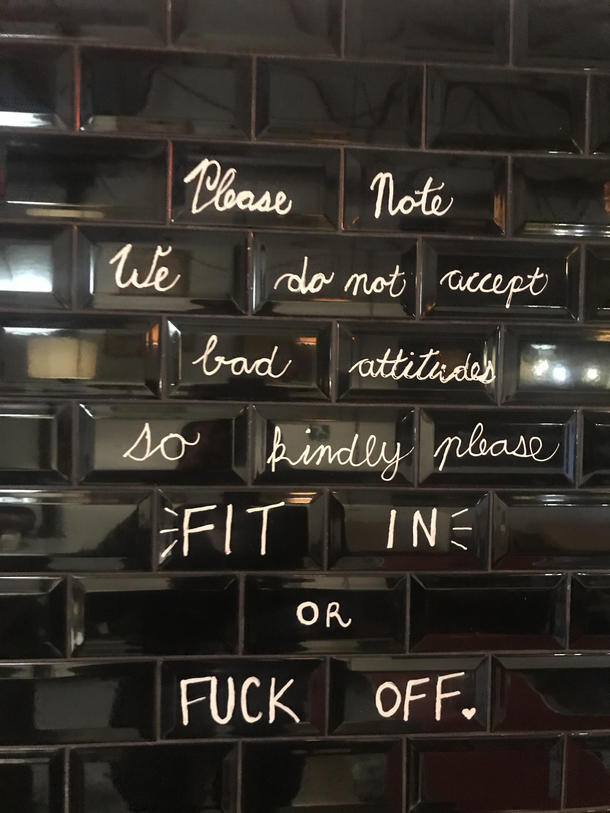 Please Note
We do not accept
bad attitudes
so kindly please
FIT IN
OR
FUCK OFF.♥